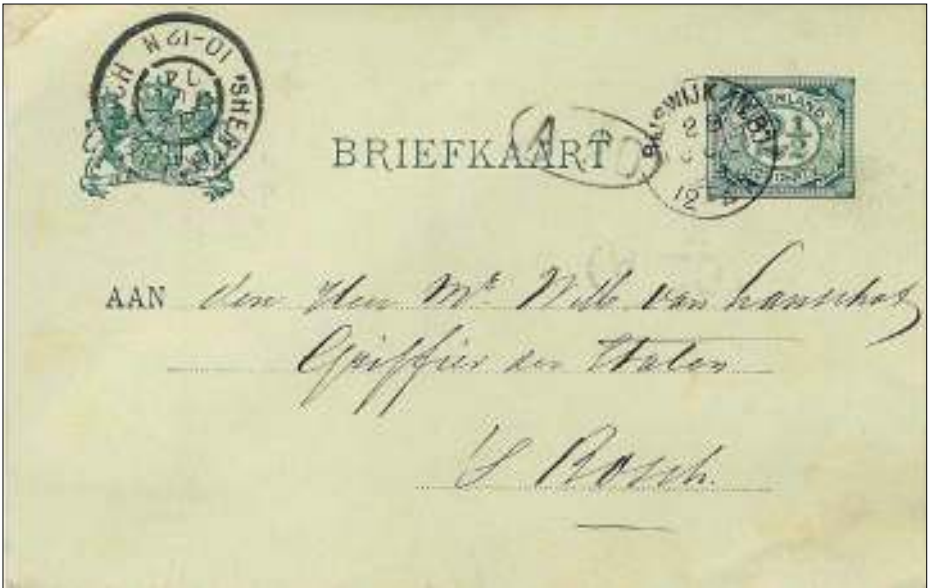 'SHERTOGENBOSCH
10-12 N
BRIEFKAART
RIJSWIJK (N.B.)
2½
12
AAN den Heer Mr. Will. van Lanschot
Griffier der Staten
's Bosch.